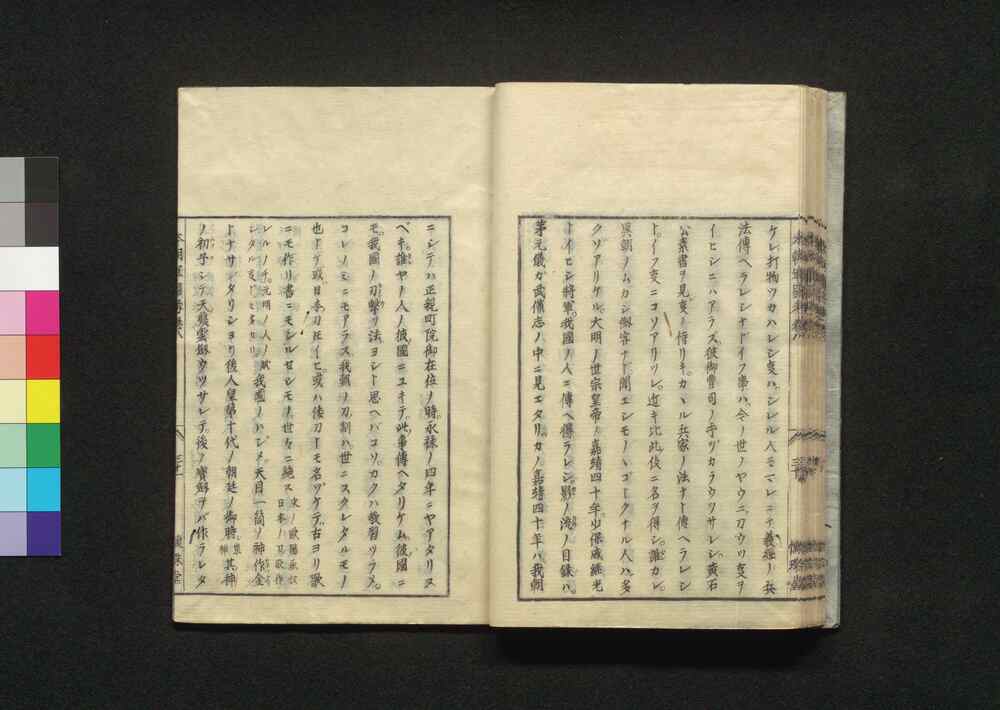 ケレ打物ツカハレシ叓ハシレル人モマレニテ義經ノ兵
法傳ヘラレシナドイフ事ハ今ノ世ノヤウニ刀ウツ叓ヲ
イヒシニハアラス彼御曹司ノ手ヅカラウツサレシ黄石
公素書ヲ見叓ノ侍リキカヽル兵家ノ法ナド傳ヘラレシ
トイフ叓ニコソアリツレ近キ比此伎ニ名ヲ得シ誰カレ
異朝ノムカシ劔客ナド聞エシモノヽゴトクナル人ハ多
クソアリケル大明ノ世宗皇帝ノ嘉靖四十年少保戚継光
トイヒシ將軍我國ノ人ニ傳ヘ得ラレシ影ノ流ノ目録ハ
茅元儀カ武備志ノ中ニ見エタリカノ嘉靖四十年ハ我朝
ニシテハ正親町院御在位ノ時永祿ノ四年ニヤアタリヌ
ベキ誰ヤノ人ノ彼國ニユキテ此事傳ヘタリケム彼國ニ
モ我國ノ刀擊ツ法ヨシト思ヘバコソカクハ教習ツラメ
コレノミニモアラス我朝ノ刀劔ハ世ニスクレタルモノ
也トゲ或日本刀トイヒ或ハ倭刀トモ名ヅケデ古ヨリ歌
ニモ作リ書ニモシルセシモノ世々ニ絶ス 宋ノ歐陽永叔 日本刀ノ歌作
レルノチ元明ノ人々ノ賦 我國ノハジメ天目一箇ノ神作金
シタル叓ドモ多シ
トナサレタリシヨリ後人皇第十代ノ朝廷ノ御時 崇神 其神
ノ初テシテ天叢雲劔ウツサレテ後ノ寳劔ヲバ作ラレタ